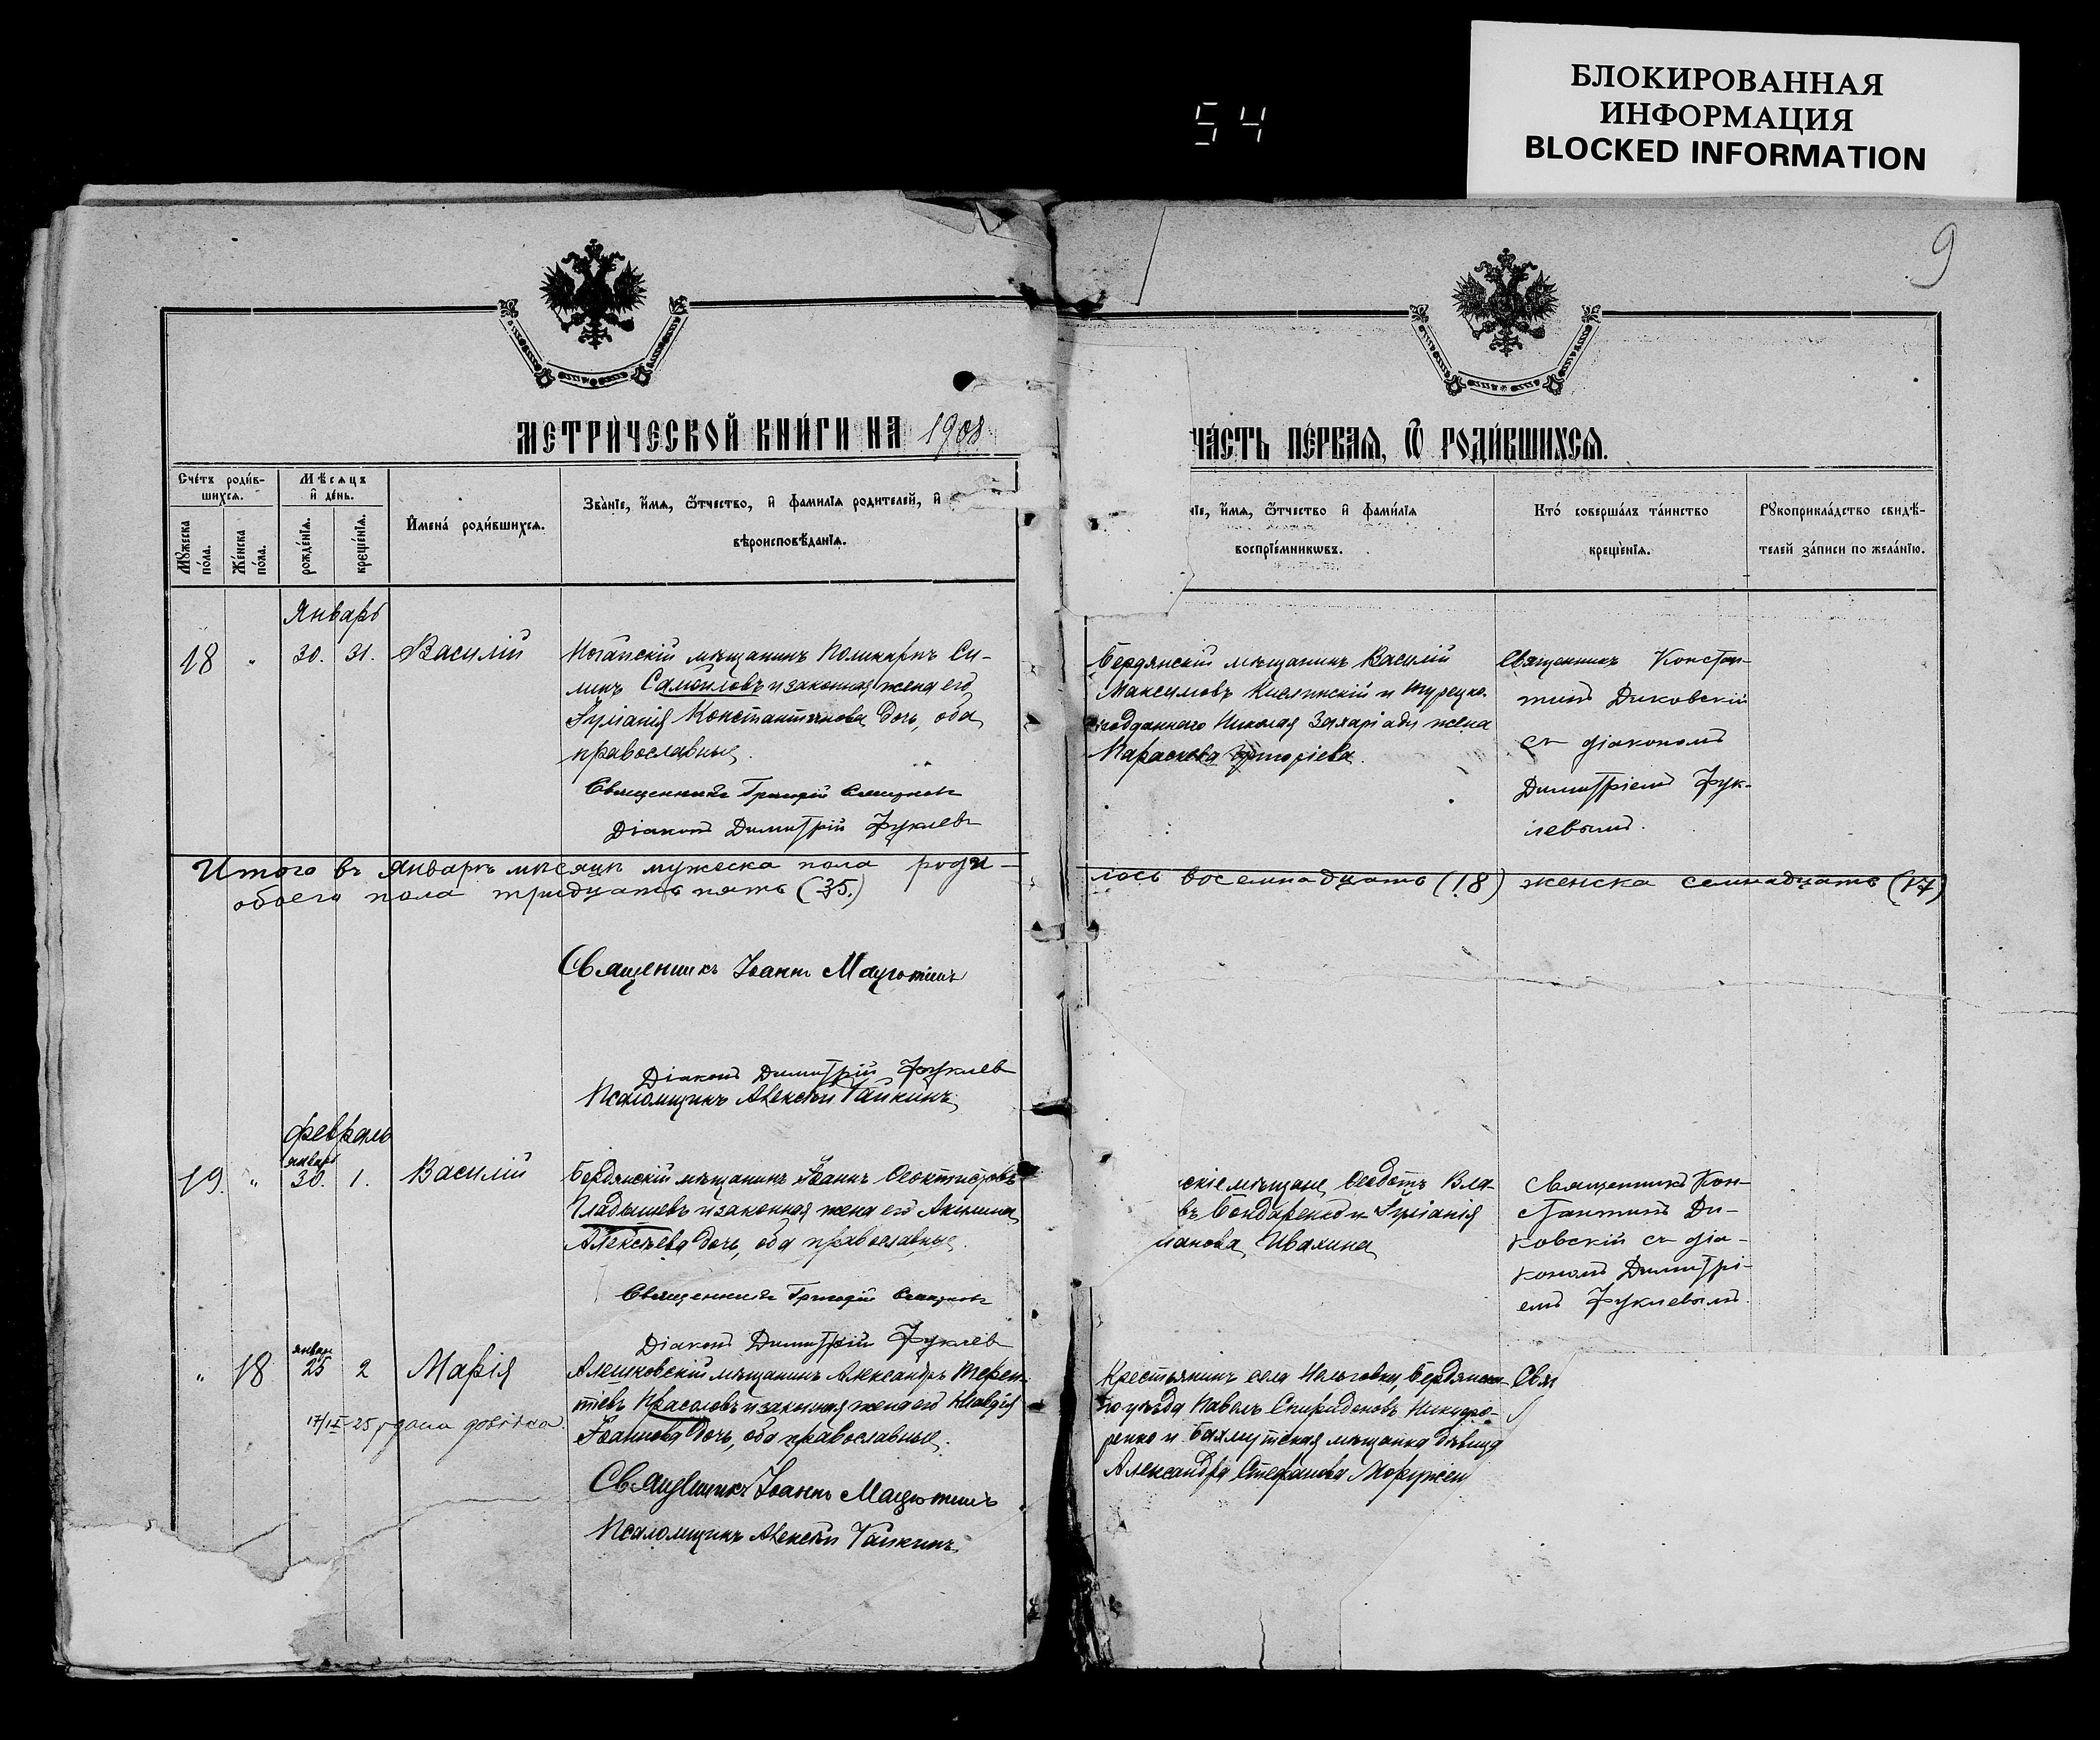 БЛОКИРОВАННАЯ
ИНФОРМАЦИЯ
BLOCKED INFORMATION
54
9
МЕТРИЧЕСКОЙ КНИГИ НА 1908
ЧАСТЬ ПЕРВАЯ, Ѿ РОДИВШИХСЯ.
Счетъ родив-
шихся.
Мѣсяцъ
и день.
Мужеска
пола.
Женска
пола.
рожденія.
крещенія.
Имена родившихся.
Званіе, имя, ѿтчество, и фамилія родителей, и
вѣроисповѣданія.
имя, ѿтчество и фамилія
воспріемникѡвъ.
Кто совершалъ таинство
крещенія.
Рукоприкладство свидѣ-
телей записи по желанію.
Январь
18 " 30. 31. Василій
Ногайскій мѣщанинъ Поликарпъ Си-
линъ Самойловъ и законная жена его
Іуліанія Константинова дочь, оба
православные.
Священникъ Григорій
Діаконъ Димитрій Фуклевъ
Бердянскій мѣщанинъ Василій
Максимовъ и турецко-
подданнаго Николая Захаріади жена
Параскева Григоріева.
Священникъ Констан-
тинъ Диковскій
съ діакономъ
Димитріемъ Фук-
левымъ.
Итого въ Январѣ мѣсяцѣ мужеска пола роди-
лось восемнадцать (18) женска семнадцать (17)
обоего пола тридцать пять (35.)
Священникъ Іоаннъ
Діаконъ Димитрій Фуклев
Псаломщикъ Алексѣй Гайкинъ
Февраль
январь
19. " 30. 1. Василій
Бердянскій мѣщанинъ Іоаннъ Ѳеоктистовъ
Гладышевъ и законная жена его Акилина
Алексѣева дочь, оба православные.
Священникъ Григорій
Діаконъ Димитрій Фуклев
скіе мѣщане, Ѳеодотъ Вла-
въ Бондаренко и Іуліанія
Ивахина
Священникъ Кон-
стантинъ Ди-
ковскій съ діа-
кономъ Димитрі-
емъ Фуклевымъ.
январ
" 18 25 2 Марія
17/IX-25 дана довідка.
Алешковскій мѣщанинъ Александръ Терен-
тіевъ Красоловъ и законная жена его Клавдія
Іоаннова дочь, оба православные.
Священникъ Іоаннъ
Псаломщикъ Алексѣй Гайкинъ
Крестьянинъ села Нельговки, Бердянска-
го уѣзда Павелъ Спиридоновъ
и Бахмутская мѣщанка дѣвица
Александра Стефанова
Свя